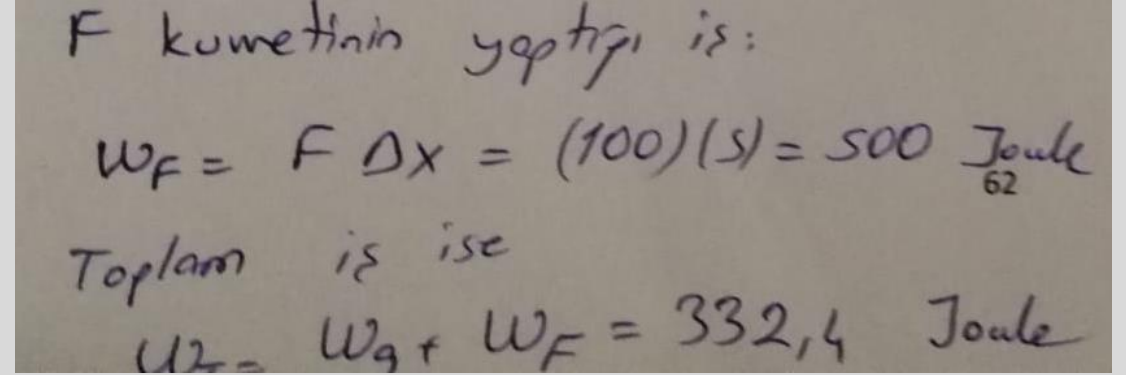 F kuvvetinin yaptığı iş:
W_F = F Δx = (100)(5) = 500 Joule
62
Toplam iş ise
W_g + W_F = 332,4 Joule